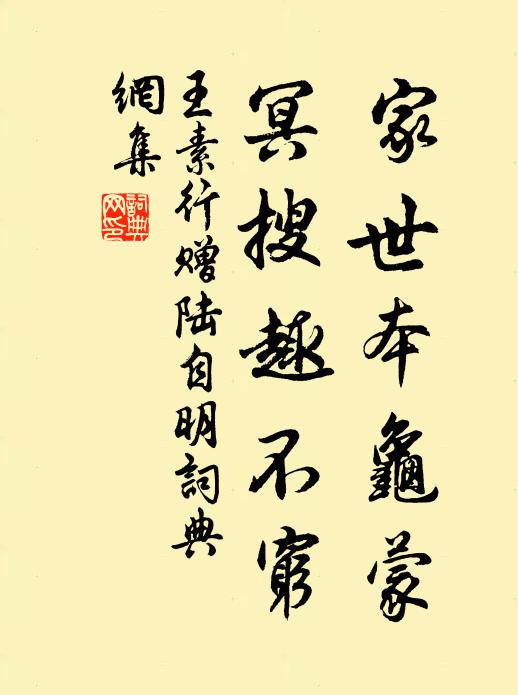 家世本龜蒙
冥搜趣不窮
王素行贈陆自明詞典
網集
詞典網印